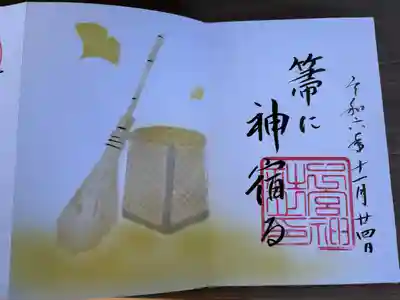 令和六年十一月廿四日
箒に
神宿る